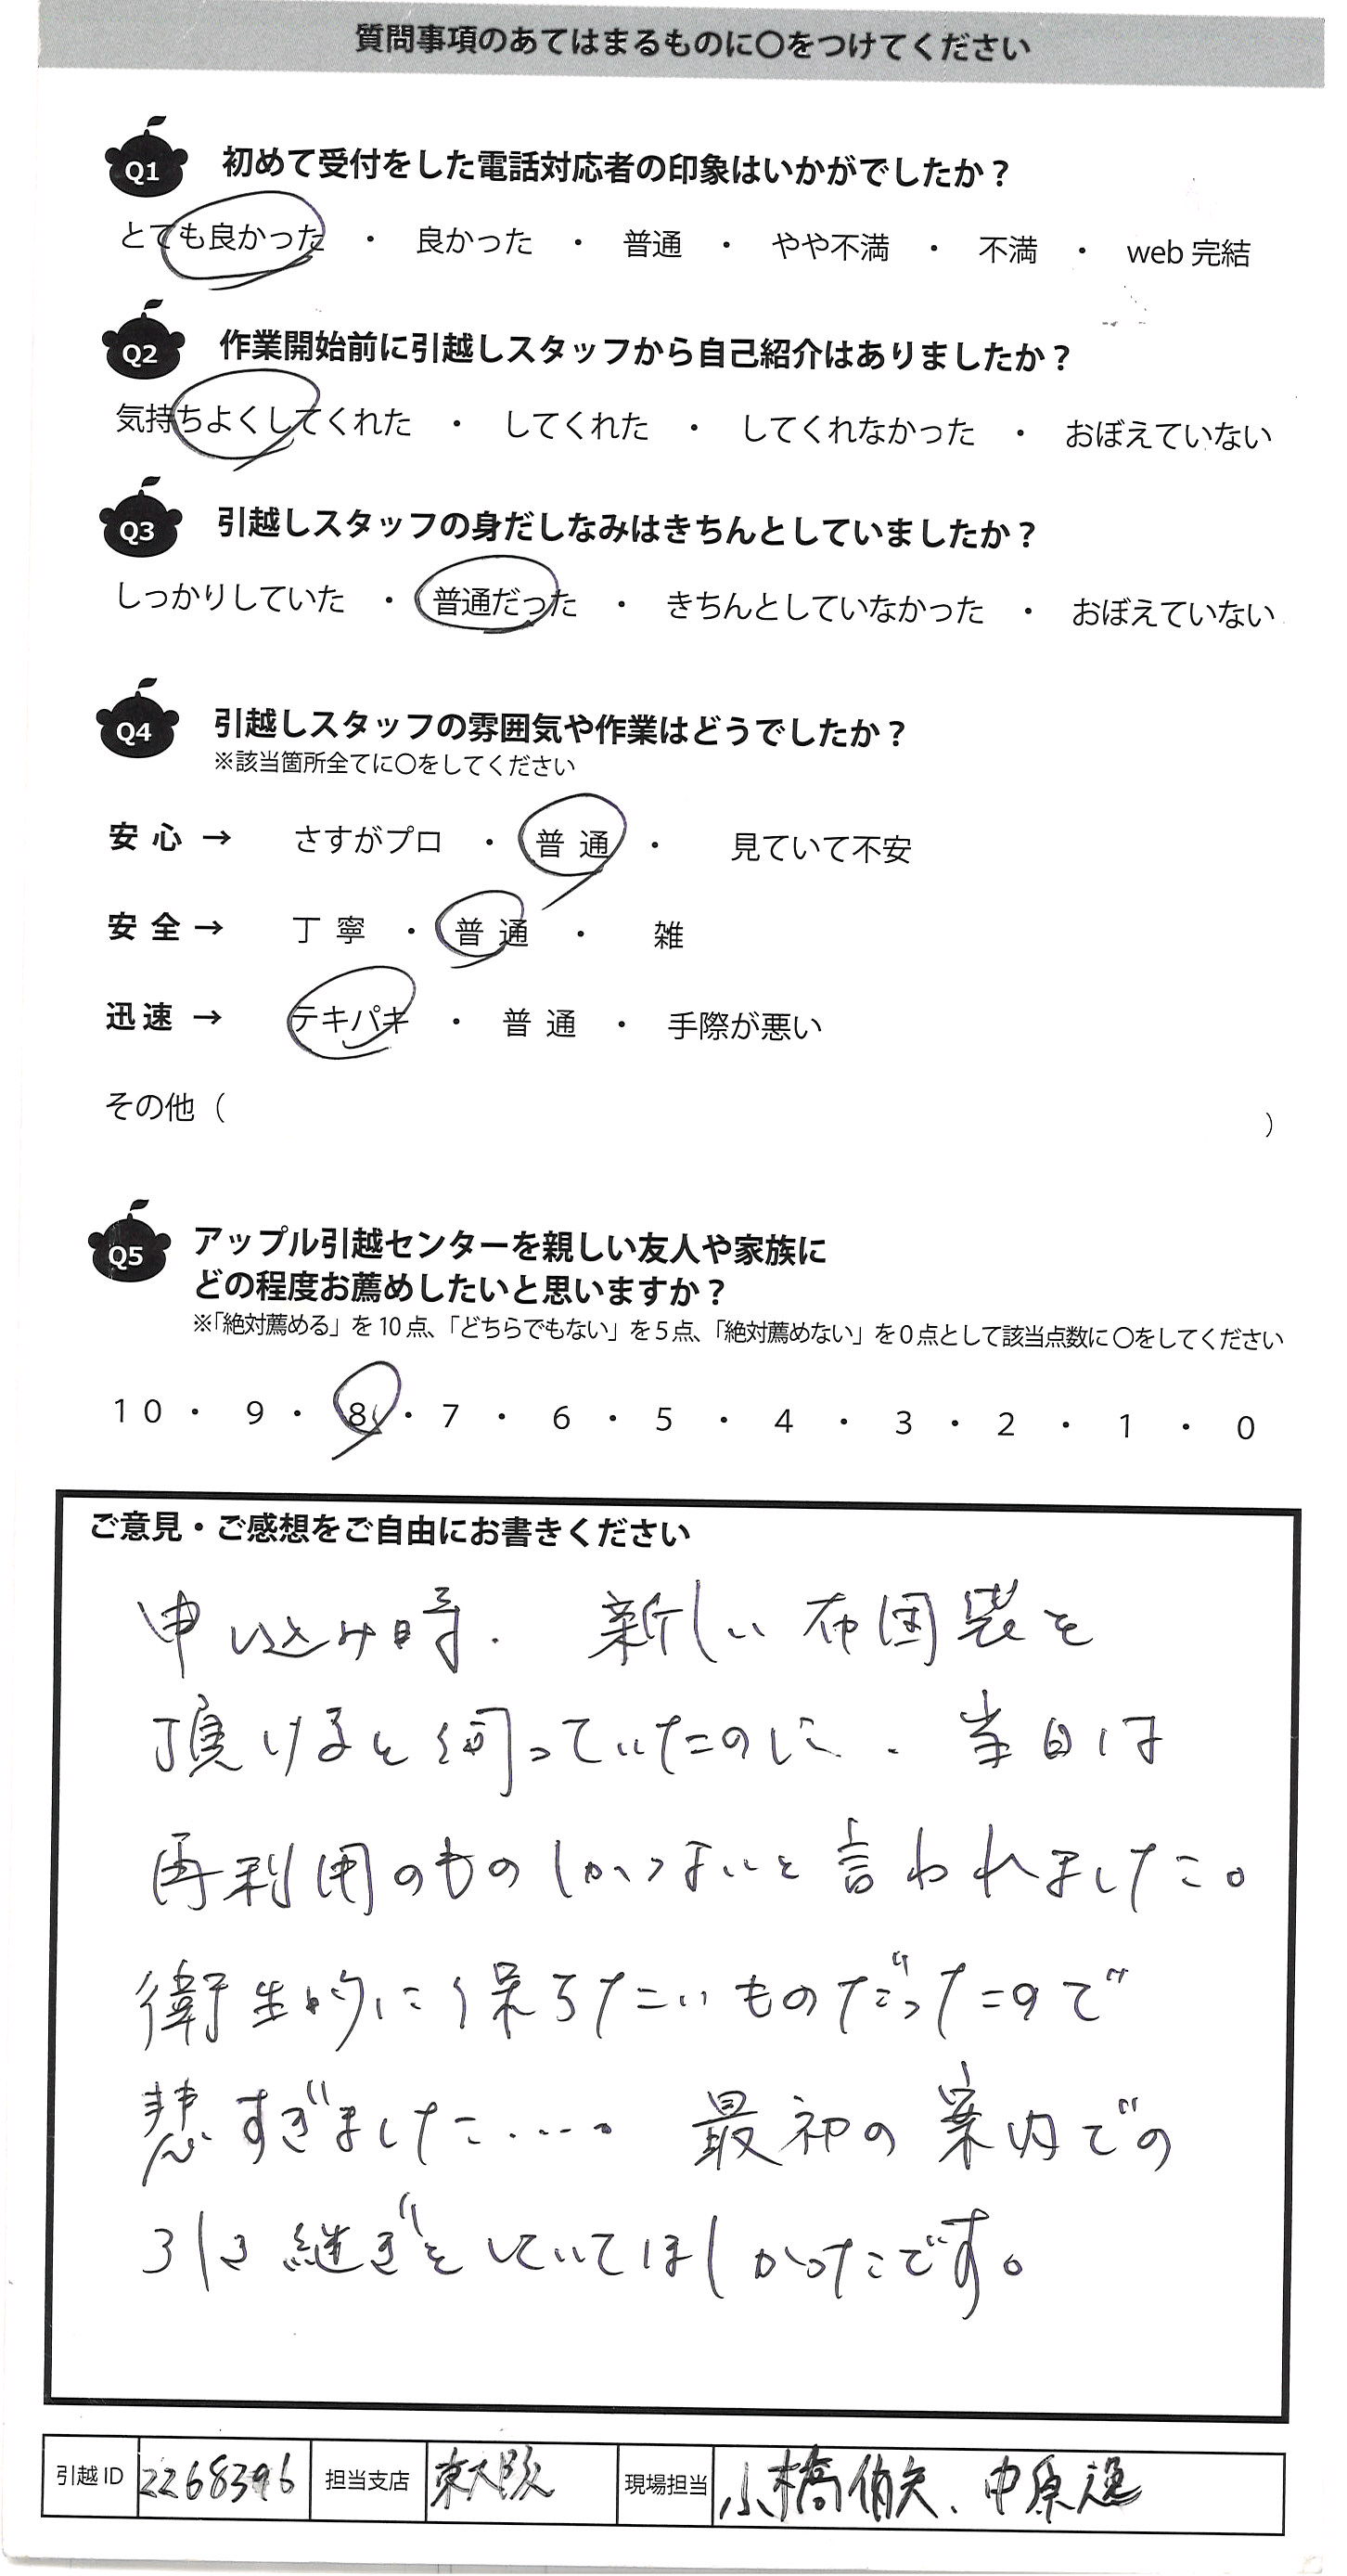 質問事項のあてはまるものに〇をつけてください
Q1 初めて受付をした電話対応者の印象はいかがでしたか？
とても良かった ・ 良かった ・ 普通 ・ やや不満 ・ 不満 ・ web 完結
Q2 作業開始前に引越しスタッフから自己紹介はありましたか？
気持ちよくしてくれた ・ してくれた ・ してくれなかった ・ おぼえていない
Q3 引越しスタッフの身だしなみはきちんとしていましたか？
しっかりしていた ・ 普通だった ・ きちんとしていなかった ・ おぼえていない
Q4 引越しスタッフの雰囲気や作業はどうでしたか？
※該当箇所全てに〇をしてください
安心 → さすがプロ ・ 普通 ・ 見ていて不安
安全 → 丁寧 ・ 普通 ・ 雑
迅速 → テキパキ ・ 普通 ・ 手際が悪い
その他（ ）
Q5 アップル引越センターを親しい友人や家族に
どの程度お薦めしたいと思いますか？
※「絶対薦める」を 10 点、「どちらでもない」を 5 点、「絶対薦めない」を 0 点として該当点数に 〇をしてください
10 ・ 9 ・ 8 ・ 7 ・ 6 ・ 5 ・ 4 ・ 3 ・ 2 ・ 1 ・ 0
ご意見・ご感想をご自由にお書きください
申し込み時、新しい布団袋を
頂けると伺っていたのに、当日は
再利用のものしかないと言われました。
衛生的に保ちたいものだったので
悲すぎました…。最初の案内での
引き継ぎをしていてほしかったです。
引越 ID 2268396 担当支店 東大阪 現場担当 小橋侑矢、中原